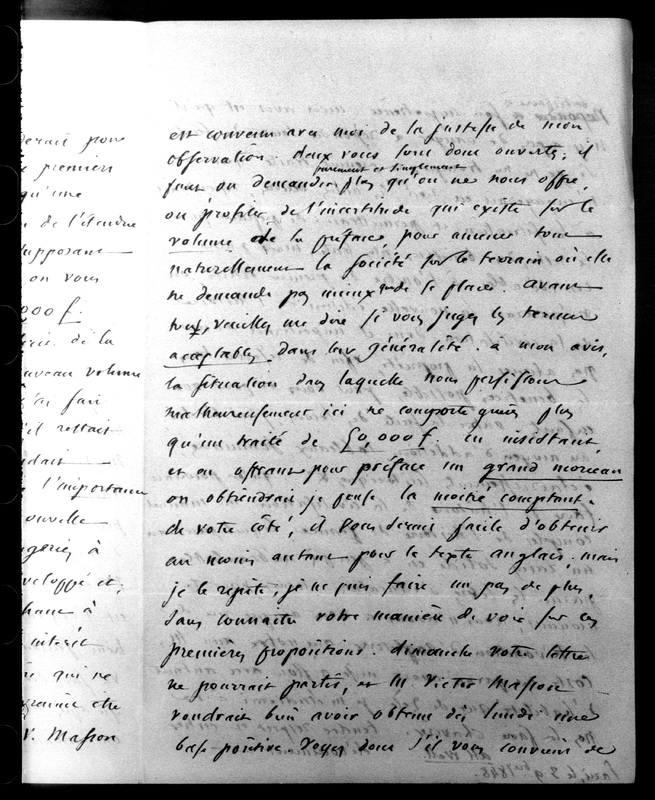 derait pour
premiers
qu'une
de l'étendue
supposant
on vous
000 f.
de la
nouveau volume
j'ai fait
s'il restait
l'importance
nouvelle
à
développé et,
à
qui ne
V. Masson
est convenu avec moi de la justesse de mon
observation. deux voies sont donc ouvertes; il
purement et simplement
faut ou demander plus qu'on ne nous offre,
ou profiter de l'incertitude qui existe sur le
volume de la préface, pour amener tout
naturellement la société sur le terrain où elle
ne demande pas mieux que de se placer. avant
tout, veuillez me dire si vous jugez les termes
acceptables dans leur généralité. à mon avis,
la situation dans laquelle nous persistons
malheureusement ici ne comporte guères plus
qu'un traité de 50,000 f. en insistant,
et en offrant pour préface un grand morceau
on obtiendrait je pense la moitié comptant.
de votre côté, il vous serait facile d'obtenir
au moins autant pour le texte anglais. mais
je le répète, je ne puis faire un pas de plus,
sans connaître votre manière de voir sur ces
premières propositions. dimanche votre lettre
ne pourrait partir, et M Victor Masson
voudrait bien avoir obtenu dès lundi une
base positive. voyez donc s'il vous convient de